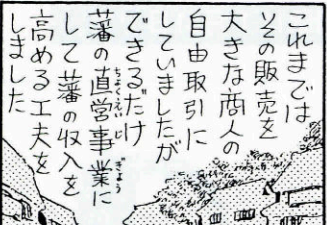 これまでは
その販売を
大きな商人の
自由取引に
していましたが
できるだけ
藩の直営事業に
して藩の収入を
高める工夫を
しました